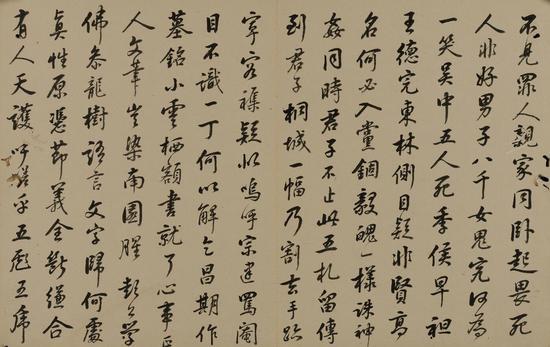 不見罪人親家同臥起畏死
人非好男子八千女鬼究何為
一笑吳中五人死季侯早袒
王德完東林側目疑非賢高
名何必入黨錮毅魄一樣誅神
姦同時君子不止此五札留傳
到君子桐城一幅乃割去手跡
寧容褫疑似嗚呼宗建罵閹
目不識一丁何以解之昌期作
墓銘小雲栖額書就了心事正
人文筆豈染南園腥彭公學
佛參龍樹語言文字歸何處
真性原憑節義全斷縑合
有人天護吁嗟乎五彪五虎